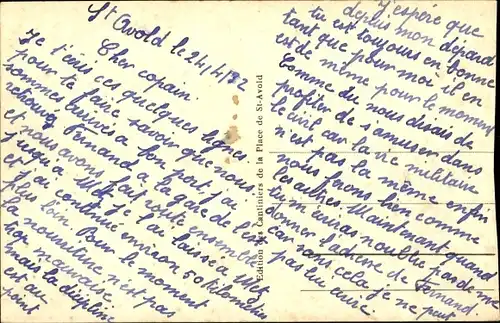 St Avold le 24/4/32
Cher copain
Je t'écris ces quelques lignes
pour te faire savoir que nous
sommes arrivés a bon port j'ai
retrouvé Fernand a la gare de l'est
et nous avons fait route ensemble
jusqu'a Metz je l'ai laissé a Metz
et j'ai continué environ 50 kilomètres
plus loin. Pour le moment
la nourriture n'est pas
trop mauvaise
mais la dicipline
est au
point
Edition des Cantiniers de la Place de St-Avold
J'espére que
depuis mon départ
tu est toujours en bonne
tant que pour moi il en
est de même pour le moment
Comme tu nous disais de
profiter de s'amuser dans
le civil car la vie militaire
n'est pas la même enfin
nous ferons bien comme
les autres Maintenant quand
tu m'écriras n'oublie pas de me
donner l'adresse de Fernand.
car sans cela je ne peut
pas lui écrire.